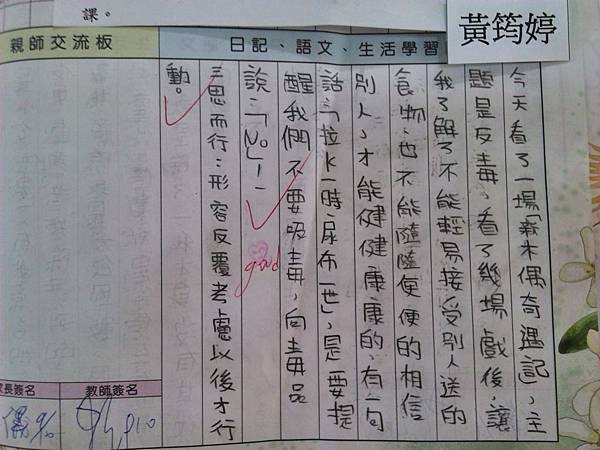 課。
黃筠婷
親師交流板
日記、語文、生活學習
今天看了一場「新木偶奇遇記」,主
題是反毒,看了幾場戲後,讓
我了解了不能輕易接受別人送的
食物,也不能隨隨便便的相信
別人,才能健健康康的,有一句
話:「拉K一時,尿布一世」,是要提
醒我們不要吸毒,向毒品
說:「No」!
good
三思而行:形容反覆考慮以後才行
動。
長簽名
教師簽名